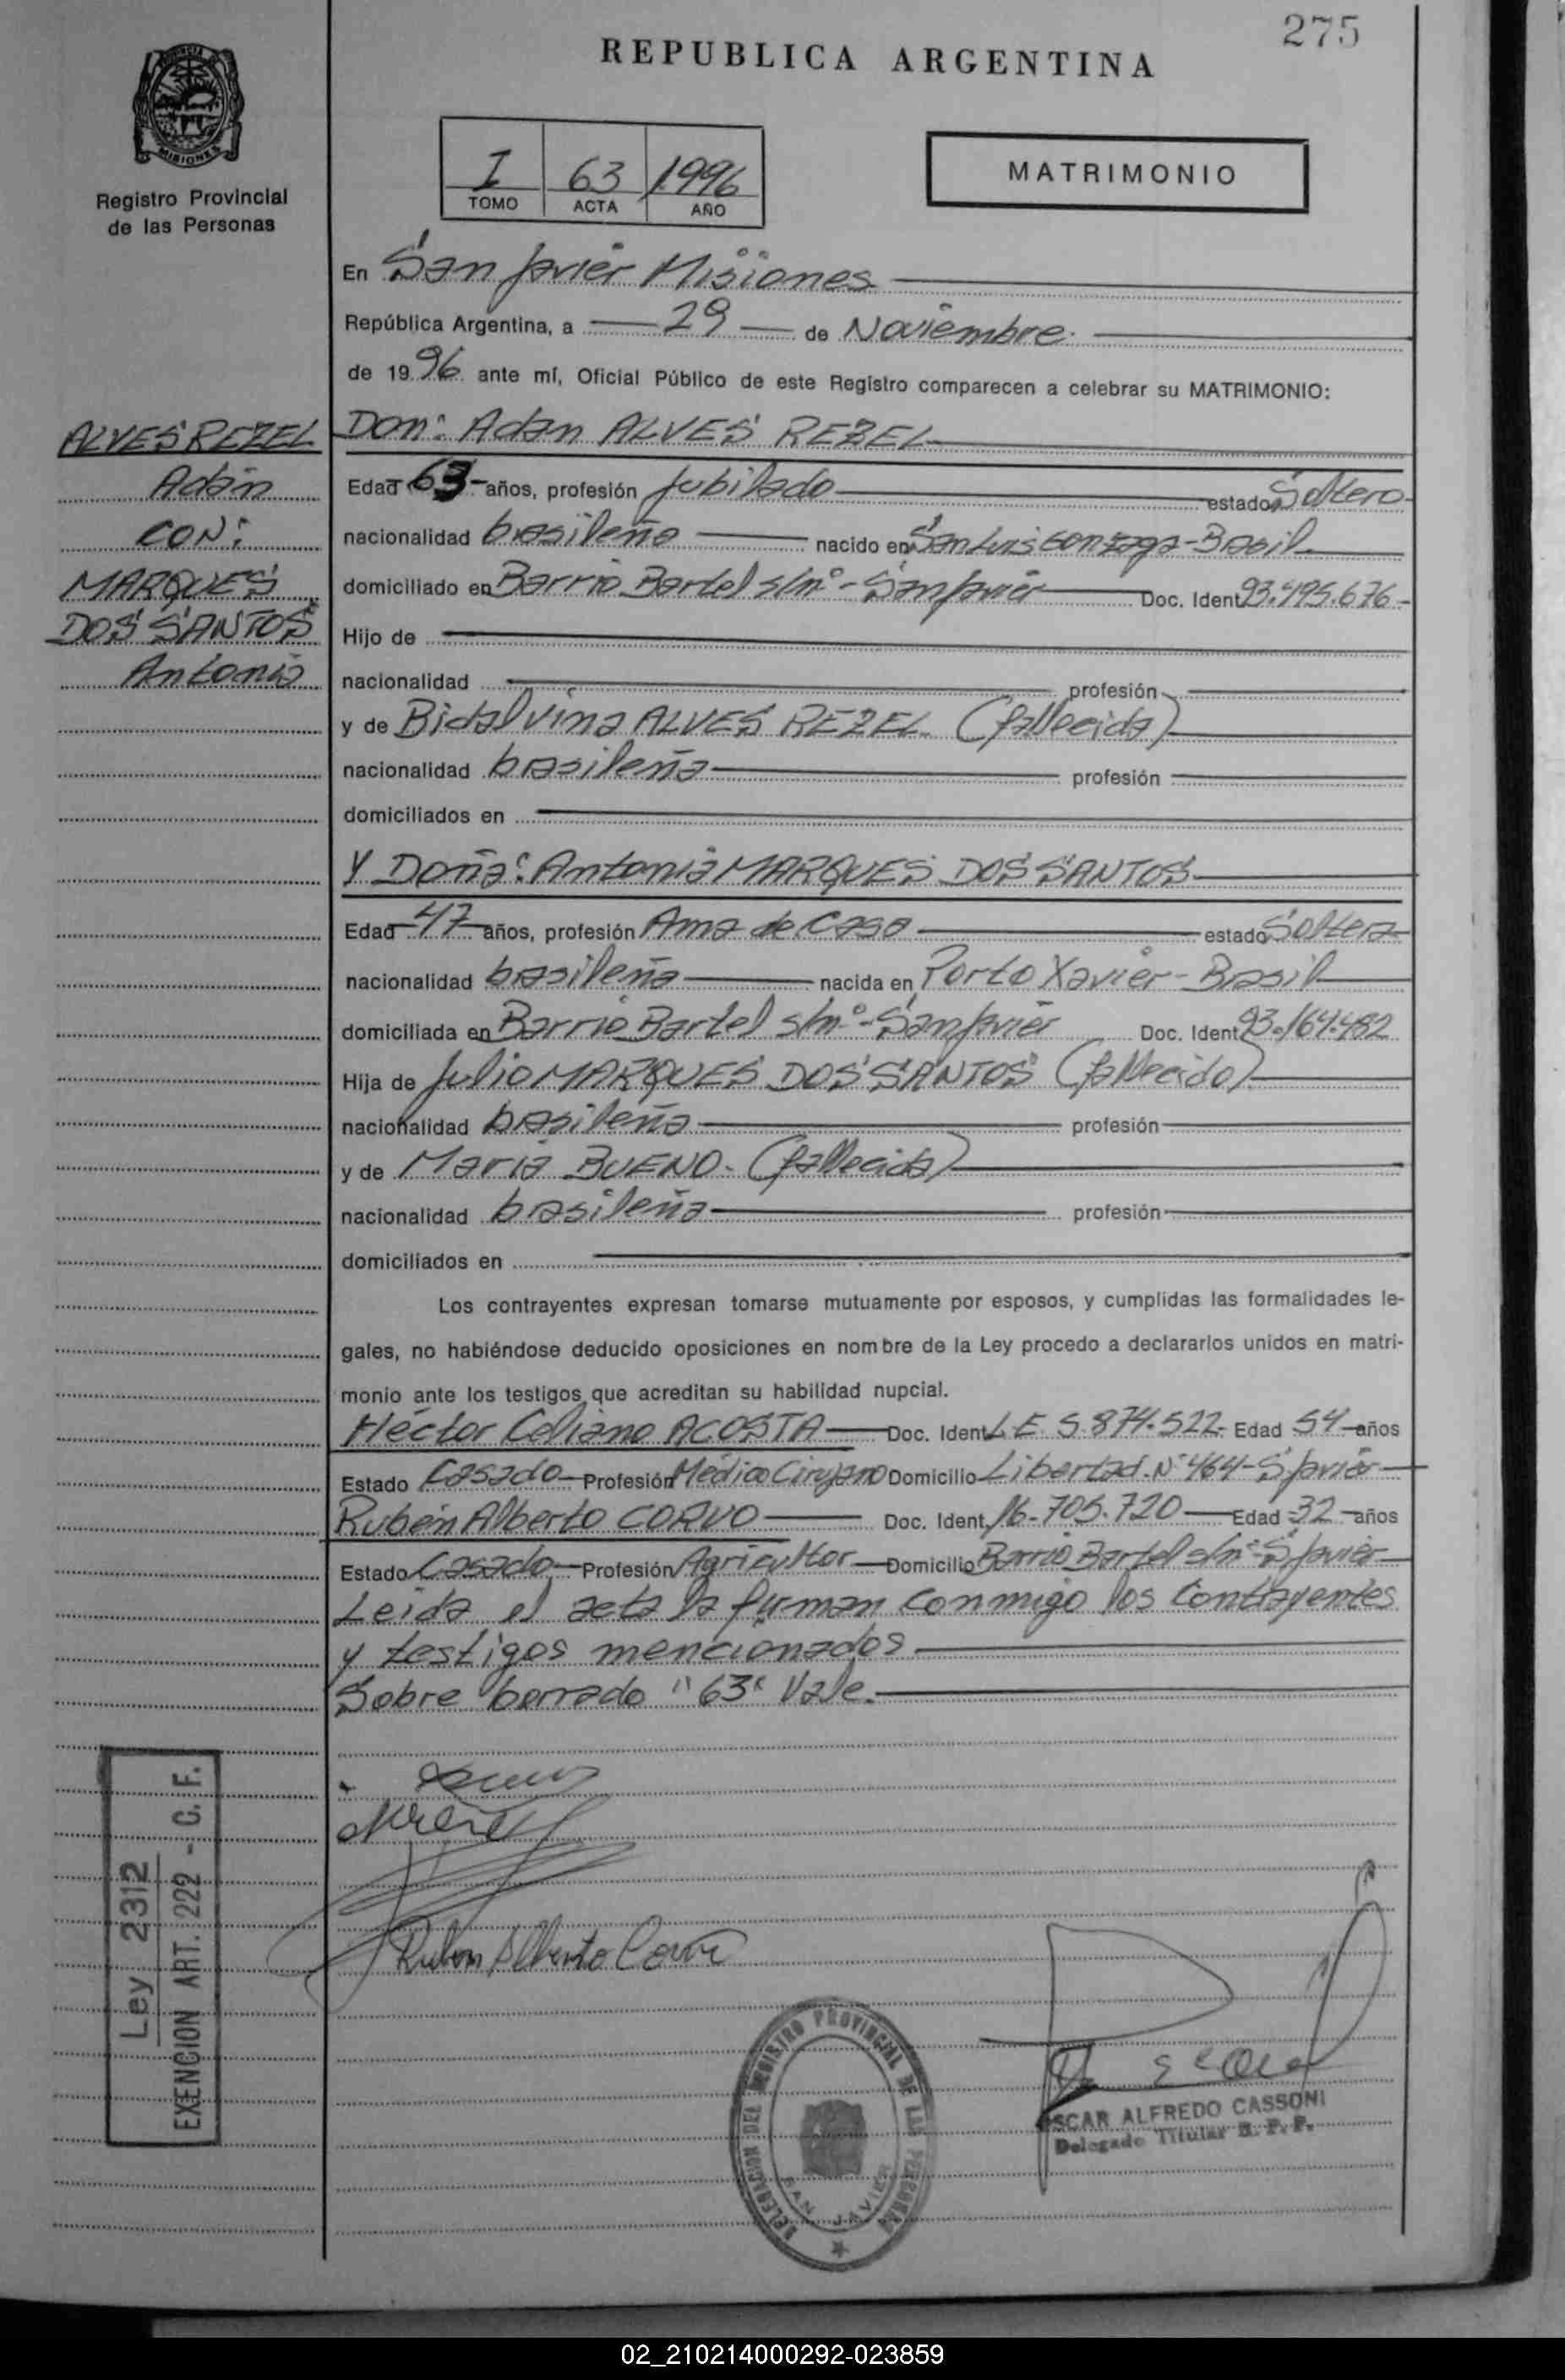 275
REPUBLICA ARGENTINA
MISIONES
Registro Provincial
de las Personas
I 63 1996
TOMO ACTA AÑO
MATRIMONIO
En San Javier Misiones
República Argentina, a 29 de Noviembre.
de 1996 ante mí, Oficial Público de este Registro comparecen a celebrar su MATRIMONIO:
ALVES REZEL
Adán
CON:
MARQUES
DOS SANTOS
Antonia
Don: Adan ALVES REZEL
Edad 63 años, profesión Jubilado estado Soltero
nacionalidad brasileña nacido en San Luis Gonzaga - Brasil
domiciliado en Barrio Bartel s/nº - San Javier Doc. Ident. 93.495.676
Hijo de
nacionalidad profesión
y de Bidalvina ALVES REZEL. (fallecida)
nacionalidad brasileña profesión
domiciliados en
Y Doña: Antonia MARQUES DOS SANTOS
Edad 47 años, profesión Ama de Casa estado Soltera
nacionalidad brasileña nacida en Porto Xavier - Brasil
domiciliada en Barrio Bartel s/nº - San Javier Doc. Ident. 93.164.482
Hija de Julio MARQUES DOS SANTOS (fallecido)
nacionalidad brasileña profesión
y de Maria BUENO. (fallecida)
nacionalidad brasileña profesión
domiciliados en
Los contrayentes expresan tomarse mutuamente por esposos, y cumplidas las formalidades le-
gales, no habiéndose deducido oposiciones en nombre de la Ley procedo a declararlos unidos en matri-
monio ante los testigos que acreditan su habilidad nupcial.
Héctor Celiano ACOSTA Doc. Ident. L.E. 5.874.522 Edad 54 años
Estado Casado Profesión Médico Cirujano Domicilio Libertad Nº 464 - S Javier
Rubén Alberto CORVO Doc. Ident. 16.705.720 Edad 32 años
Estado Casado Profesión Agricultor Domicilio Barrio Bartel s/nº S Javier
Leida el acta la firman conmigo los contrayentes
y testigos mencionados
Sobre borrado "63" Vale.
Ley 2312
EXENCION ART. 222 - C. F.
Ruben Alberto Corvo
DELEGACION DEL REGISTRO PROVINCIAL DE LAS PERSONAS
SAN JAVIER
OSCAR ALFREDO CASSONI
Delegado Titular R. P. P.
02_210214000292-023859